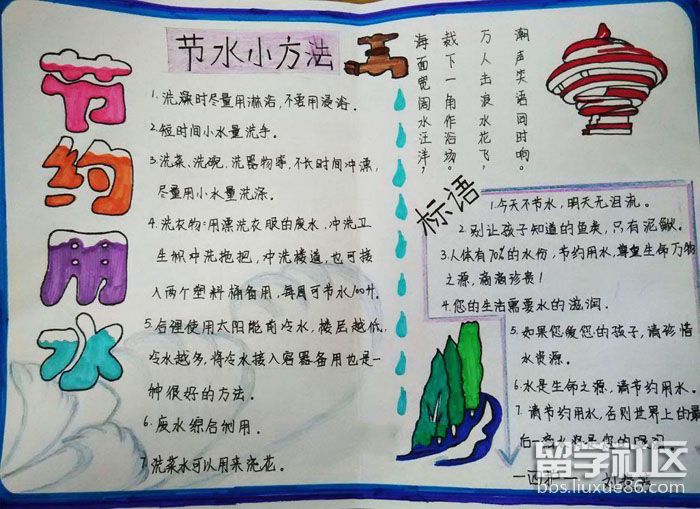 节约用水
节水小方法
1. 洗澡时尽量用淋浴，不要用浸浴。
2. 短时间小水量洗手。
3. 洗菜、洗碗、洗器物等，不长时间冲漂，
尽量用小水量洗涤。
4. 洗衣物：用漂洗衣服的废水，冲洗卫
生间冲洗拖把，冲洗楼道，也可接
入两个塑料桶备用，每周可节水100升。
5. 合理使用太阳能前冷水，楼层越低，
冷水越多，将冷水接入容器备用也是一
种很好的方法。
6. 废水综合利用。
7. 洗菜水可以用来浇花。
潮声笑语同时响。
万人击浪水花飞，
裁下一角作浴场。
海面宽阔水汪洋，
标语
1. 今天不节水，明天无泪流。
2. 别让孩子知道的鱼类，只有泥鳅。
3. 人体有70%的水份，节约用水，尊重生命万物
之源，滴滴珍贵！
4. 您的生活需要水的滋润。
5. 如果您爱您的孩子，请珍惜
水资源。
6. 水是生命之源，请节约用水。
7. 请节约用水，否则世界上的最
后一
留学社区
bbs.liuxue86.com